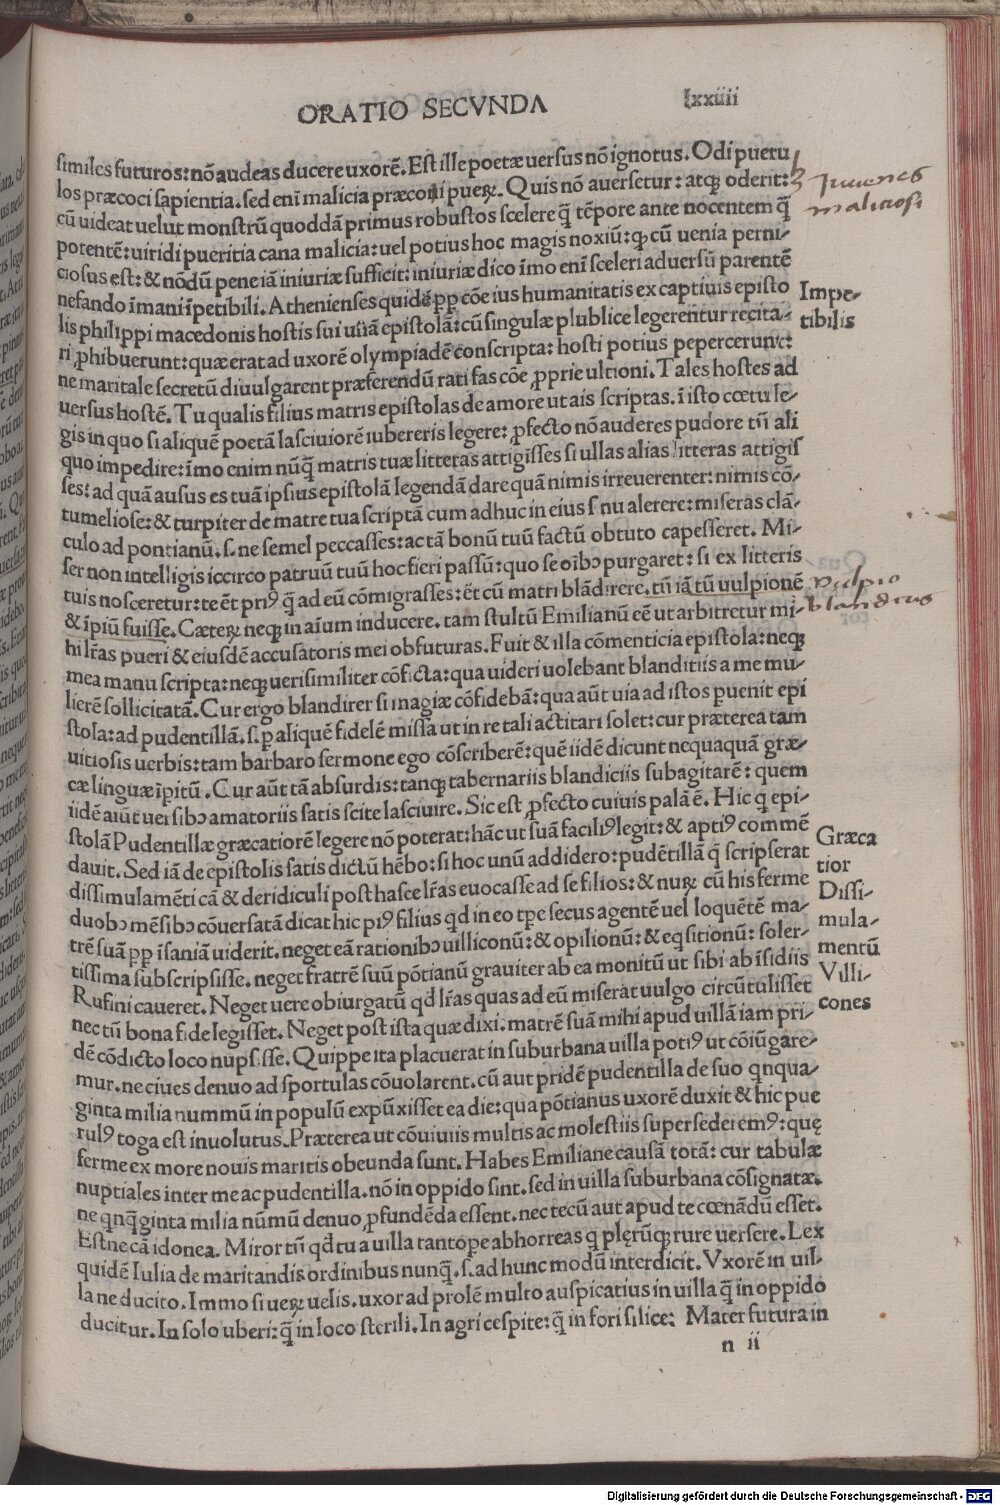 ORATIO SECVNDA
lxxiiii
similes futuros: nõ audeas ducere uxorẽ. Est ille poetæ uersus nõ ignotus. Odi pueru
los præcoci sapientia. sed eni malicia præcoqui pueꝝ. Quis nõ auersetur: atqꝫ oderit:
cũ uideat uelut monstrũ quoddã primus robustos scelere q̃ tẽpore ante nocentem q̃
potentẽ: uiridi pueritia cana malicia: uel potius hoc magis noxiũ: ꝙ cũ uenia perni-
ciosus est: & nõdũ pene iã iniuriæ sufficit: iniuriæ dico ĩmo eni sceleri aduersũ parentẽ
nefando ĩmani ĩpetibili. Athenienses quidẽ ꝓp cõe ius humanitatis ex captiuis episto
lis philippi macedonis hostis sui unã epistolã: cũ singulæ plublice legerentur recita-
ri ꝓhibuerunt: quæ erat ad uxorẽ olympiadẽ conscripta: hosti potius pepercerunt:
ne maritale secretũ diuulgarent præferendũ rati fas cõe ꝓprie ultioni. Tales hostes ad
uersus hostẽ. Tu qualis filius matris epistolas de amore ut ais scriptas. ĩ isto cœtu le-
gis in quo si aliquẽ poetã lasciuiorẽ iubereris legere: ꝓfecto nõ auderes pudore tñ ali
quo impedire: ĩmo enim nũq̃ matris tuæ litteras attigĩsses si ullas alias litteras attigis
ses: ad quã ausus es tuã ipsius epistolã legendã dare quã nimis irreuerenter: nimis cõ-
tumeliose: & turpiter de matre tua scriptã cum adhuc in eius sinu alerere: miseras clã-
culo ad pontianũ. s. ne semel peccasses: ac tã bonũ tuũ factũ obtuto capesseret. Mi-
ser non intelligis iccirco patruũ tuũ hoc fieri passũ: quo se oĩbꝰ purgaret: si ex litteris
tuis nosceretur: te ẽt priꝰ q̃ ad eũ cõmigrasses: ẽt cũ matri blãdirere. tũ iã tũ uulpionẽ
& ĩpiũ fuisse. Cæteꝝ neqꝫ in aĩum inducere. tam stultũ Emilianũ eẽ ut arbitretur mi-
hi lr̃as pueri & eiusdẽ accusatoris mei obfuturas. Fuit & illa cõmenticia epistola: neqꝫ
mea manu scripta: neqꝫ uerisimiliter cõficta: qua uideri uolebant blanditiis a me mu-
lierẽ sollicitatã. Cur ergo blandirer si magiæ cõfidebã: qua aũt uia ad istos puenit epi
stola: ad pudentillã. s. p aliquẽ fidelẽ missa ut in re tali actitari solet: cur præterea tam
uitiosis uerbis: tam barbaro sermone ego cõscriberẽ: quẽ iidẽ dicunt nequaquã græ-
cæ linguæ ĩpitũ. Cur aũt tã absurdis: tanqꝫ tabernariis blandiciis subagitarẽ: quem
iidẽ aiũt uersibꝰ amatoriis satis scite lasciuire. Sic est ꝓfecto cuiuis palã ẽ. Hic q epi-
stolã Pudentillæ græcatiorẽ legere nõ poterat: hãc ut suã faciliꝰ legit: & aptiꝰ commẽ
dauit. Sed iã de epistolis satis dictũ hẽbo: si hoc unũ addidero: pudẽtillã q̃ scripserat
dissimulamẽti cã & deridiculi post hasce lr̃as euocasse ad se filios: & nuꝝ cũ his ferme
duobꝰ mẽsibꝰ cõuersatã dicat hic piꝰ filius qd in eo tpe secus agentẽ uel loquẽtẽ ma-
trẽ suã ꝓp ĩsaniã uiderit. neget eã rationibꝰ uilliconũ: & opilionũ: & eqsitionũ: soler-
tissima subscripsisse. neget fratrẽ suũ põtianũ grauiter ab ea monitũ ut sibi ab ĩsidiis
Rufini caueret. Neget uere obiurgatũ qd lr̃as quas ad eũ miserat uulgo circũtulisset
nec tũ bona fide legisset. Neget post ista quæ dixi. matrẽ suã mihi apud uillã iam pri-
dẽ cõdicto loco nupsisse. Quippe ita placuerat in suburbana uilla potiꝰ ut cõiũgare-
mur. ne ciues denuo ad sportulas cõuolarent. cũ aut pridẽ pudentilla de suo qnqua-
ginta milia nummũ in populũ expũxisset ea die: qua põtianus uxorẽ duxit & hic pue
rulꝰ toga est inuolutus. Præterea ut cõuiuiis multis ac molestiis supersederemꝰ: quę
ferme ex more nouis maritis obeunda sunt. Habes Emiliane causã totã: cur tabulæ
nuptiales inter me ac pudentilla. nõ in oppido sint. sed in uilla suburbana cõsignatæ.
ne qnq̃ginta milia nũmũ denuo ꝓfundẽda essent. nec tecũ aut apud te cœnãdũ esset.
Estne cã idonea. Miror tñ qd tu a uilla tantope abhorreas q plęrũqꝫ rure uersere. Lex
quidẽ Iulia de maritandis ordinibus nunq̃. s. ad hunc modũ interdicit. Vxorẽ in uil-
la ne ducito. Immo si ueꝝ uelis. uxor ad prolẽ multo auspicatius in uilla q̃ in oppido
ducitur. In solo uberi: q̃ in loco sterili. In agri cespite: q̃ in fori silice: Mater futura in
n ii
Juuenes
malitiosi
Impe-
tibilis
vulpio
blandius
Græca
tior
Dissi-
mula-
mentũ
Villi-
cones
Digitalisierung gefördert durch die Deutsche Forschungsgemeinschaft - DFG